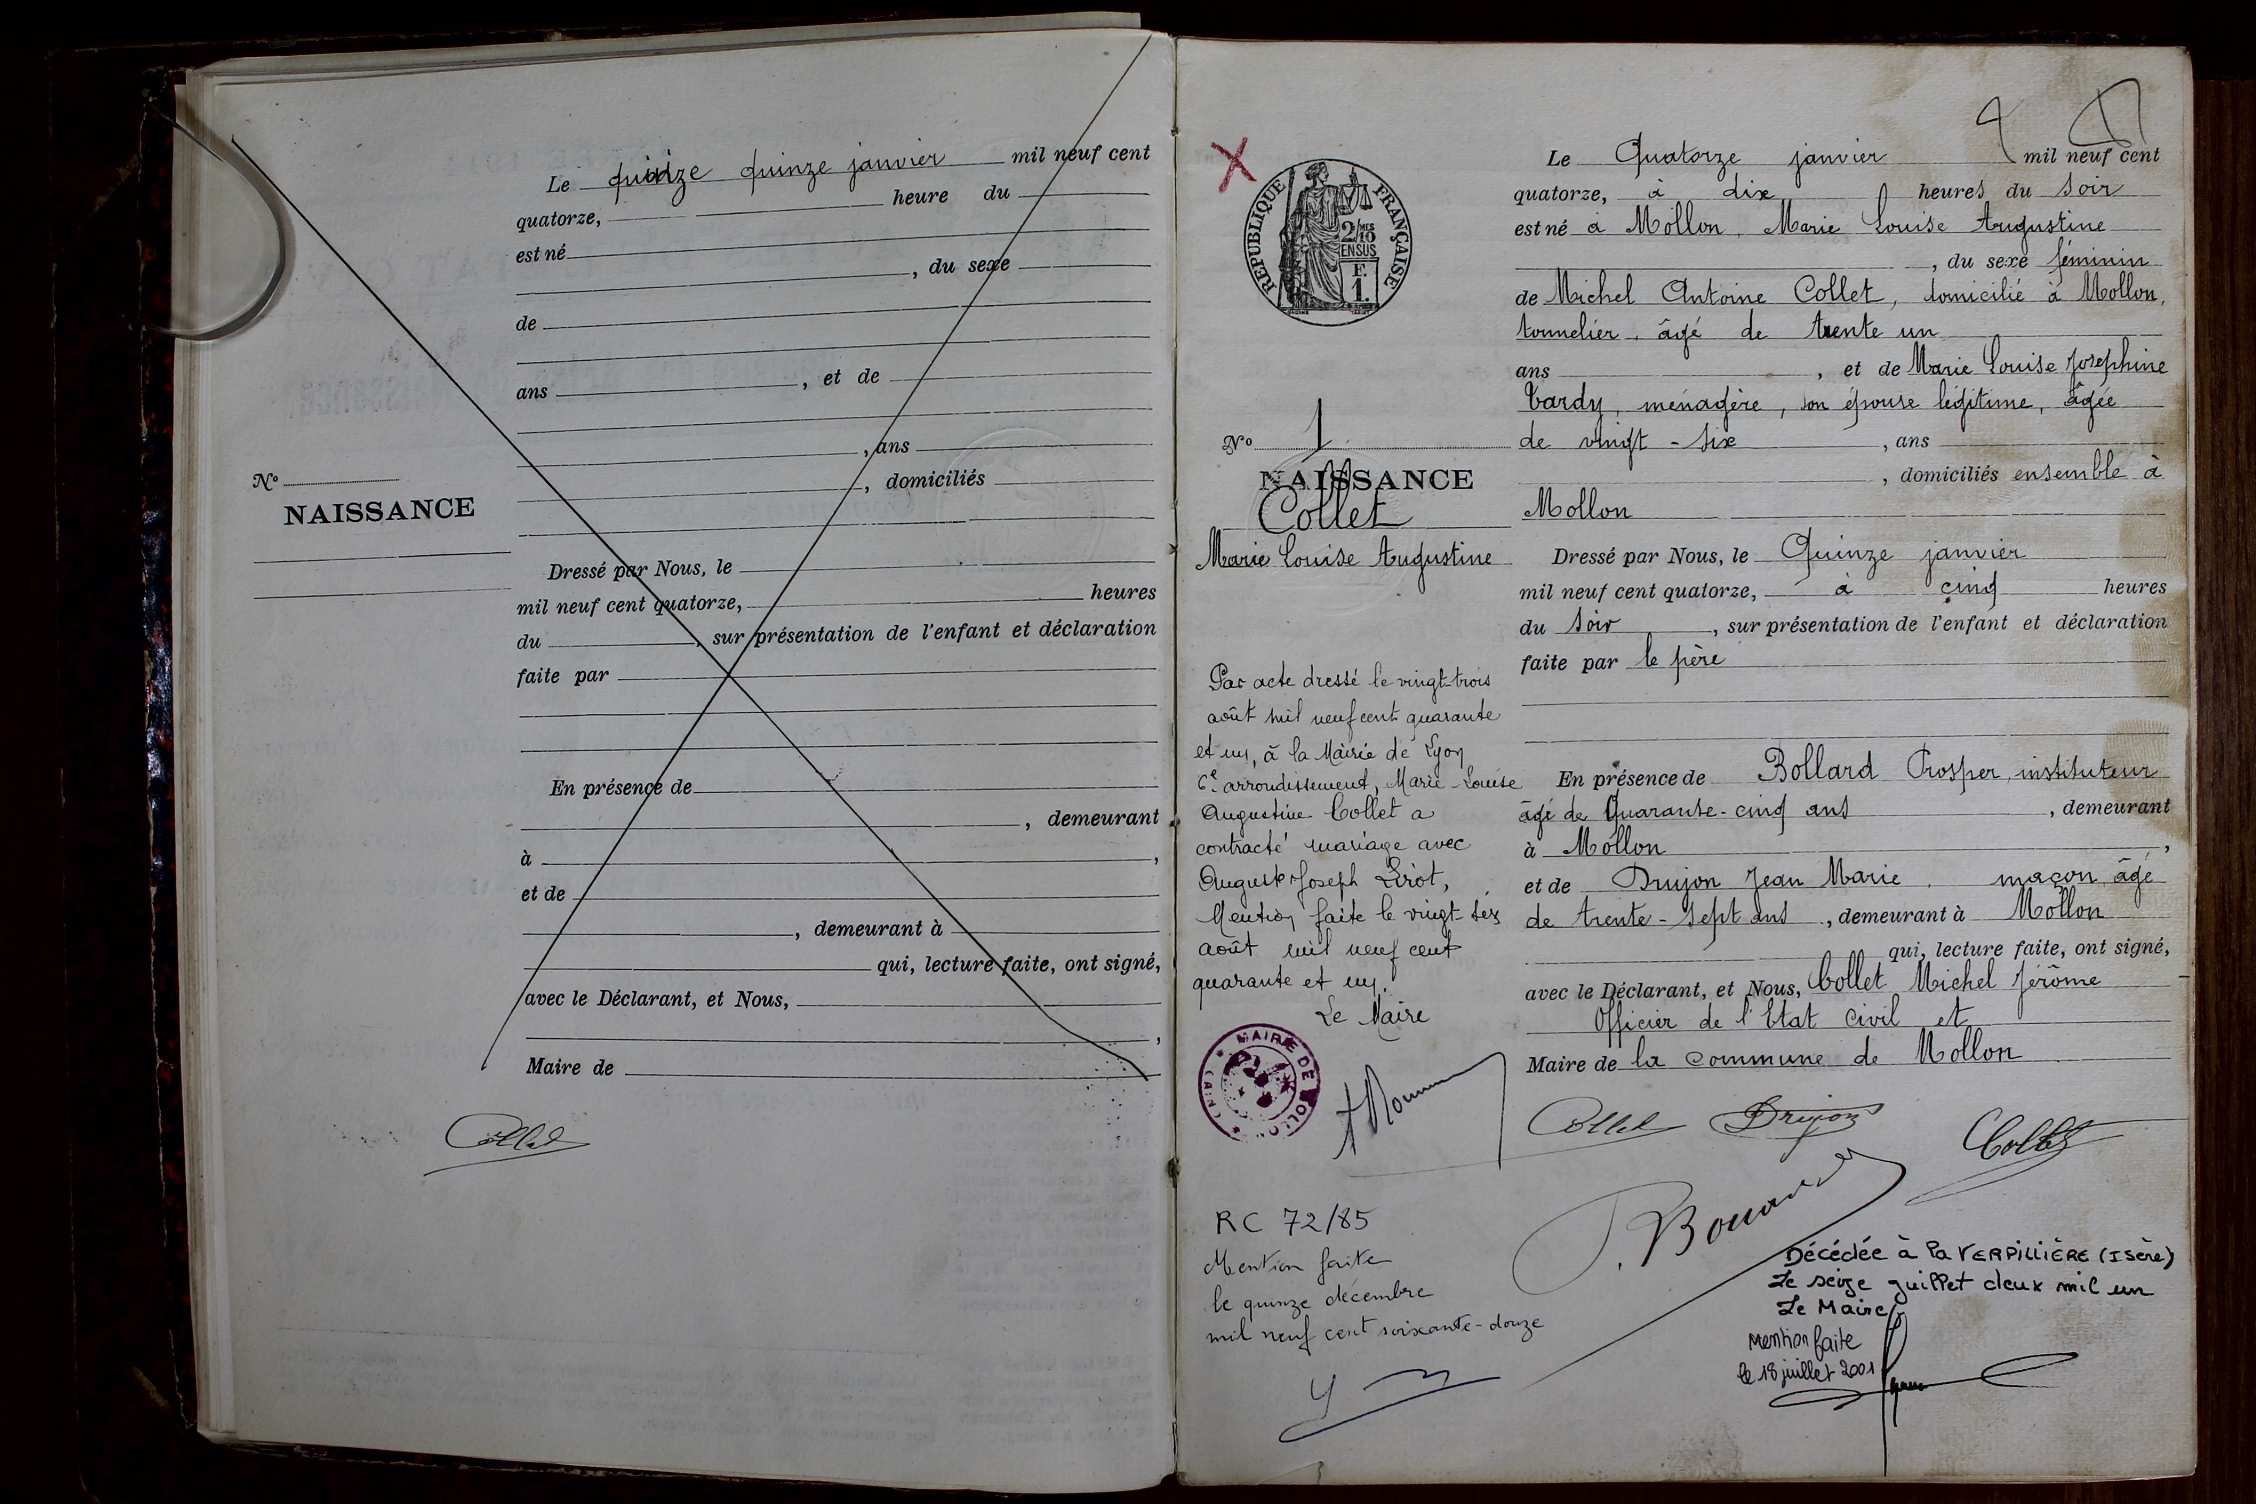 Le quinze quinze janvier mil neuf cent
quatorze, heure du
est né
, du sexe
de
ans , et de
, ans
, domiciliés
No
NAISSANCE
Dressé par Nous, le
mil neuf cent quatorze, heures
du , sur présentation de l'enfant et déclaration
faite par
En présence de
, demeurant
à ,
et de
, demeurant à
qui, lecture faite, ont signé,
avec le Déclarant, et Nous,
,
Maire de
Collet
RÉPUBLIQUE FRANÇAISE
2/10
MES
EN SUS
F.
1.
No 1
NAISSANCE
Collet
Marie Louise Augustine
Par acte dressé le vingt-trois
août mil neuf cent quarante
et un, à la Mairie de Lyon
6e arrondissement, Marie-Louise
Augustine Collet a
contracté mariage avec
Auguste Joseph
Mention faite le vingt-six
août mil neuf cent
quarante et un.
Le Maire
MAIRIE DE MOLLON
(AIN)
RC 72/85
Mention faite
le quinze décembre
mil neuf cent soixante-douze
Le Quatorze janvier mil neuf cent
quatorze, à dix heures du soir
est né à Mollon, Marie Louise Augustine
, du sexe féminin
de Michel Antoine Collet, domicilié à Mollon,
tonnelier, âgé de trente un
ans , et de Marie Louise Josephine
Tardy, ménagère, son épouse légitime, âgée
de vingt-six , ans
, domiciliés ensemble à
Mollon
Dressé par Nous, le Quinze janvier
mil neuf cent quatorze, à cinq heures
du soir , sur présentation de l'enfant et déclaration
faite par le père
En présence de Bollard Prosper, instituteur
âgé de Quarante-cinq ans , demeurant
à Mollon ,
et de Drujon Jean Marie, maçon, âgé
de trente-sept ans , demeurant à Mollon
qui, lecture faite, ont signé,
avec le Déclarant, et Nous, Collet Michel Jérôme
Officier de l'Etat civil et
Maire de la commune de Mollon
Collet Drujon Collet
Décédée à La VERPILLIÈRE (Isère)
Le seize juillet deux mil un
Le Maire
Mention faite
le 18 juillet 2001